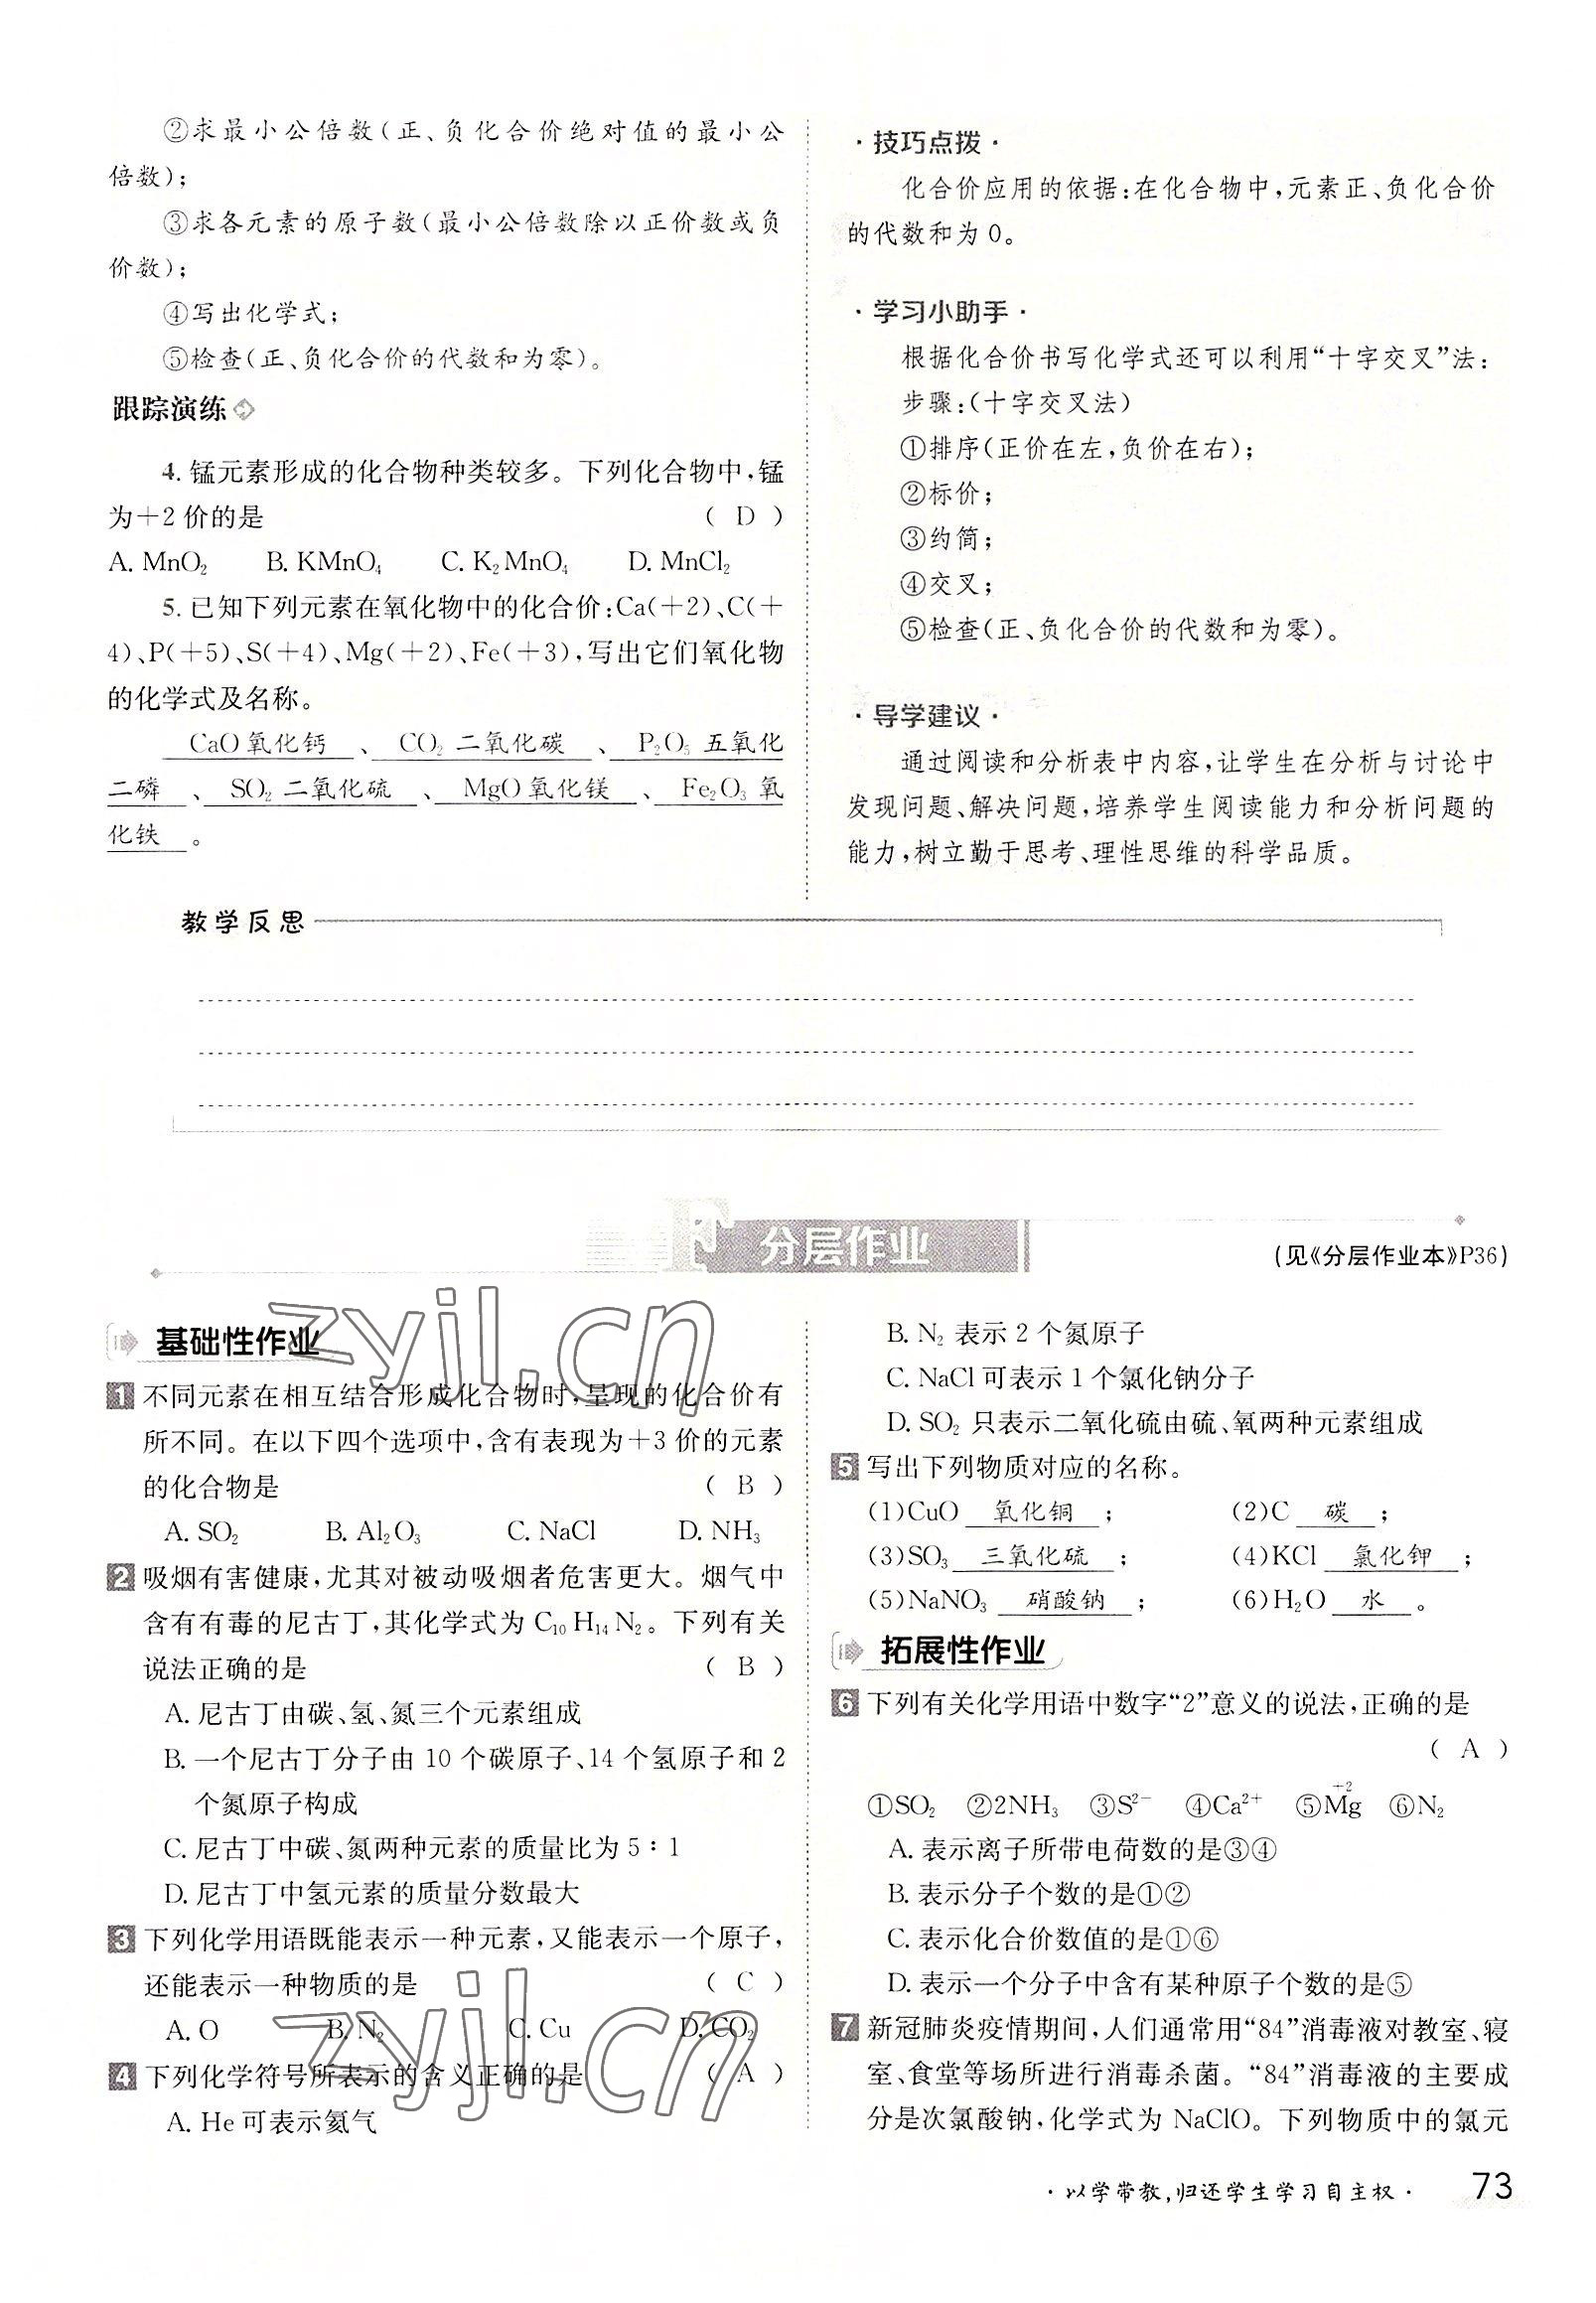 ②求最小公倍数(正、负化合价绝对值的最小公
倍数);
③求各元素的原子数(最小公倍数除以正价数或负
价数);
④写出化学式;
⑤检查(正、负化合价的代数和为零)。
跟踪演练
4. 锰元素形成的化合物种类较多。下列化合物中,锰
为+2价的是 ( D )
A. MnO₂ B. KMnO₄ C. K₂MnO₄ D. MnCl₂
5. 已知下列元素在氧化物中的化合价:Ca(+2)、C(+
4)、P(+5)、S(+4)、Mg(+2)、Fe(+3),写出它们氧化物
的化学式及名称。
CaO 氧化钙 、 CO₂ 二氧化碳 、 P₂O₅ 五氧化
二磷 、 SO₂ 二氧化硫 、 MgO 氧化镁 、 Fe₂O₃ 氧
化铁 。
·技巧点拨·
化合价应用的依据:在化合物中,元素正、负化合价
的代数和为0。
·学习小助手·
根据化合价书写化学式还可以利用“十字交叉”法:
步骤:(十字交叉法)
①排序(正价在左,负价在右);
②标价;
③约简;
④交叉;
⑤检查(正、负化合价的代数和为零)。
·导学建议·
通过阅读和分析表中内容,让学生在分析与讨论中
发现问题、解决问题,培养学生阅读能力和分析问题的
能力,树立勤于思考、理性思维的科学品质。
教学反思
分层作业
(见《分层作业本》P36)
基础性作业
1 不同元素在相互结合形成化合物时,呈现的化合价有
所不同。在以下四个选项中,含有表现为+3价的元素
的化合物是 ( B )
A. SO₂ B. Al₂O₃ C. NaCl D. NH₃
2 吸烟有害健康,尤其对被动吸烟者危害更大。烟气中
含有有毒的尼古丁,其化学式为 C₁₀H₁₄N₂。下列有关
说法正确的是 ( B )
A. 尼古丁由碳、氢、氮三个元素组成
B. 一个尼古丁分子由10个碳原子、14个氢原子和2
个氮原子构成
C. 尼古丁中碳、氮两种元素的质量比为5∶1
D. 尼古丁中氢元素的质量分数最大
3 下列化学用语既能表示一种元素,又能表示一个原子,
还能表示一种物质的是 ( C )
A. O B. N₂ C. Cu D. CO₂
4 下列化学符号所表示的含义正确的是 ( A )
A. He 可表示氦气
B. N₂ 表示2个氮原子
C. NaCl 可表示1个氯化钠分子
D. SO₂ 只表示二氧化硫由硫、氧两种元素组成
5 写出下列物质对应的名称。
(1)CuO 氧化铜 ; (2)C 碳 ;
(3)SO₃ 三氧化硫 ; (4)KCl 氯化钾 ;
(5)NaNO₃ 硝酸钠 ; (6)H₂O 水 。
拓展性作业
6 下列有关化学用语中数字“2”意义的说法,正确的是
( A )
+2
①SO₂ ②2NH₃ ③S²⁻ ④Ca²⁺ ⑤Mg ⑥N₂
A. 表示离子所带电荷数的是③④
B. 表示分子个数的是①②
C. 表示化合价数值的是①⑥
D. 表示一个分子中含有某种原子个数的是⑤
7 新冠肺炎疫情期间,人们通常用“84”消毒液对教室、寝
室、食堂等场所进行消毒杀菌。“84”消毒液的主要成
分是次氯酸钠,化学式为 NaClO。下列物质中的氯元
·以学带教,归还学生学习自主权· 73
zyjl.cn
zyjl.cn